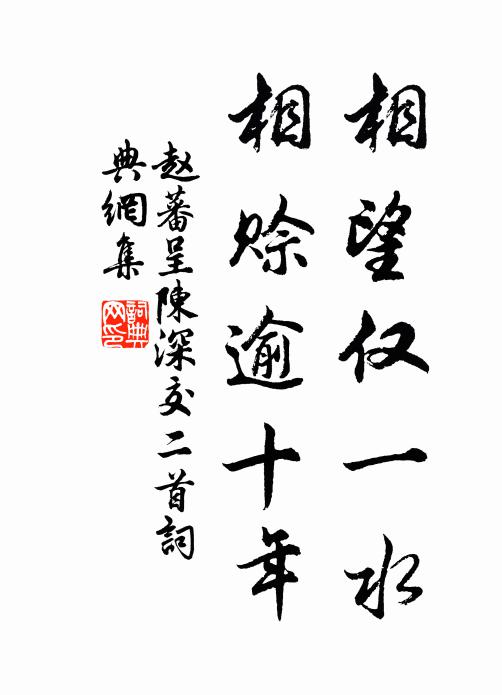 相望仅一水
相赊逾十年
赵蕃呈陳深交二首詞
典網集
詞典网印